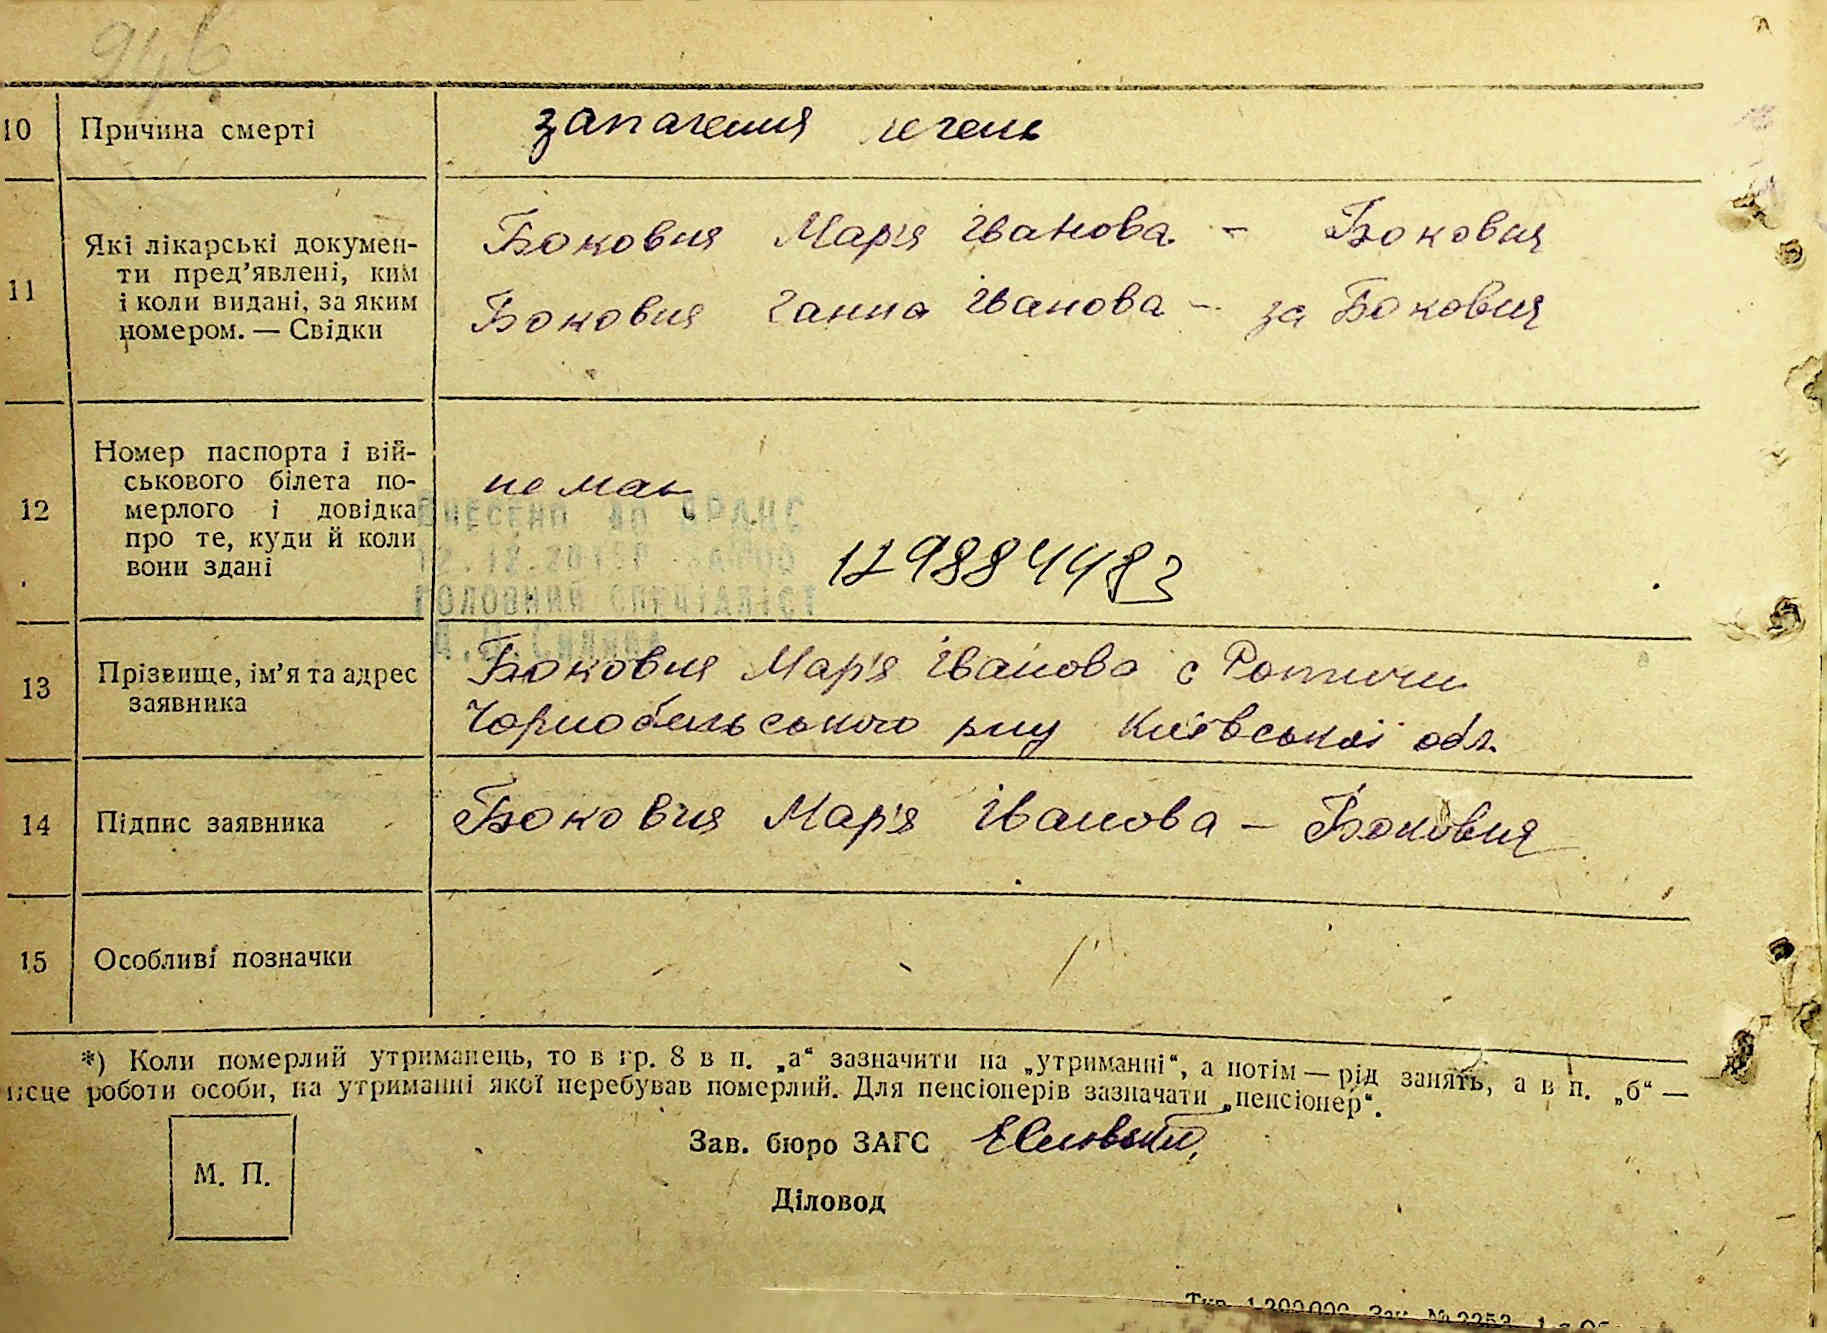 946
10 Причина смерті запалення легень
11 Які лікарські докумен-
ти пред’явлені, ким
і коли видані, за яким
номером. — Свідки
Боковня Мар'я Іванова - Боковня
Боковня Ганна Іванова - за Боковня
12 Номер паспорта і вій-
ськового білета по-
мерлого і довідка
про те, куди й коли
вони здані
не має
ВНЕСЕНО ДО ДРАЦС
12.12.201
ГОЛОВНИЙ СПЕЦІАЛІСТ
129884483
13 Прізвище, ім’я та адрес
заявника
Боковня Мар'я Іванова с Ротичи
Чорнобельського рну Київської обл.
14 Підпис заявника Боковня Мар'я Іванова – Боковня
15 Особливі позначки
*) Коли померлий утриманець, то в гр. 8 в п. „а“ зазначити на „утриманні“, а потім — рід занять, а в п. „б“ —
місце роботи особи, на утриманні якої перебував померлий. Для пенсіонерів зазначати „пенсіонер“.
М. П.
Зав. бюро ЗАГС
Діловод
Зак. № 2253